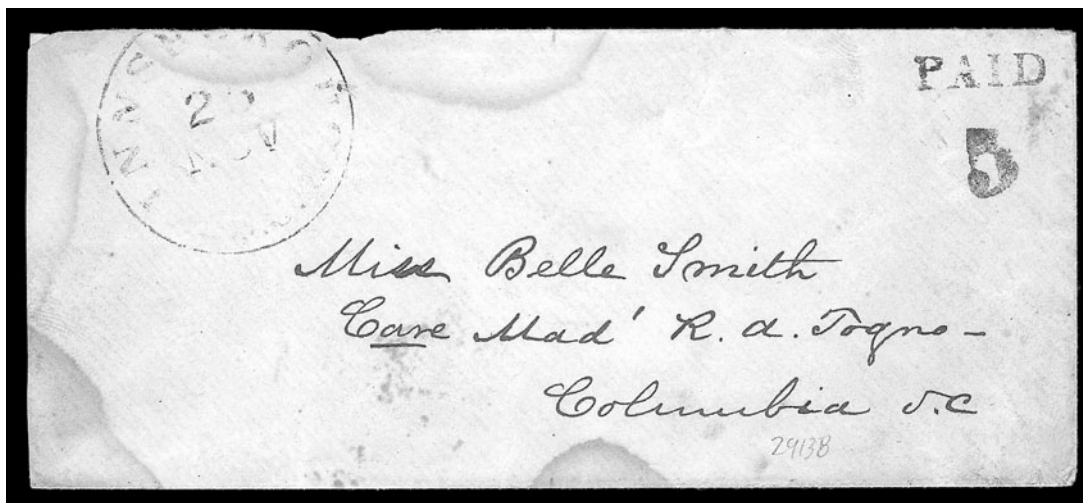 PAID
5
NOV
Miss Belle Smith
Care Mad' R. A. Togno-
Columbia S.C
2913B